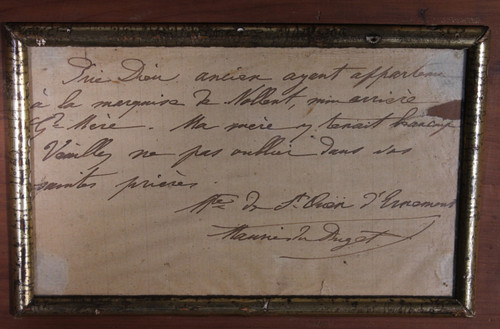 Prie Dieu ancien ayant appartenu
à la marquise de Nollent, mon arrière
Gde Mère. Ma mère y tenait beaucoup
Veuillez ne pas oublier dans vos
saintes prières.
Mse de St Ouën d'Ernemont